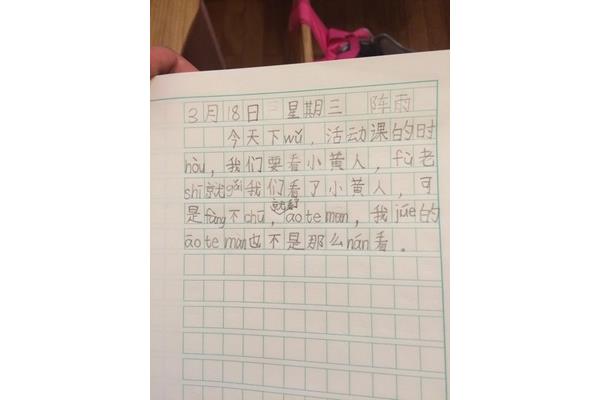 3月18日 星期三 阵雨
今天下wǔ,活动课的时
hòu,我们要看小黄人,fù老
shī就gěi我们看了小黄人,可
是fàng不chū,就看āo te màn,我jué的
āo te màn也不是那么nán看。